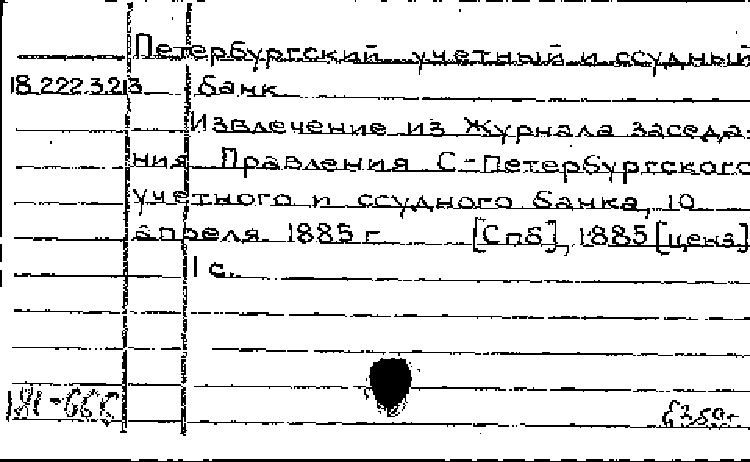 Петербургский учетный и ссудный
18.222.3.213 банк
Извлечение из Журнала заседа-
ния Правления С-Петербургского
учетного и ссудного банка, 10
апреля 1885 г. [Спб], 1885 [ценз]
1 с.